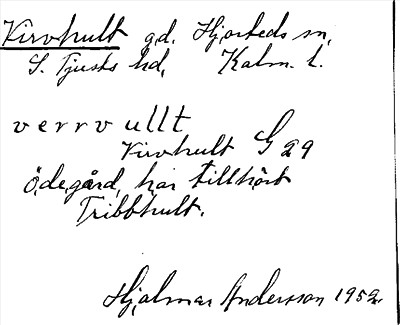 Virvhult gd. Hjorteds sn,
S. Tjusts hd, Kalm. l.
verrvullt
Virvhult G 29
Ödegård, har tillhört
Tribbhult.
Hjalmar Andersson 1952.